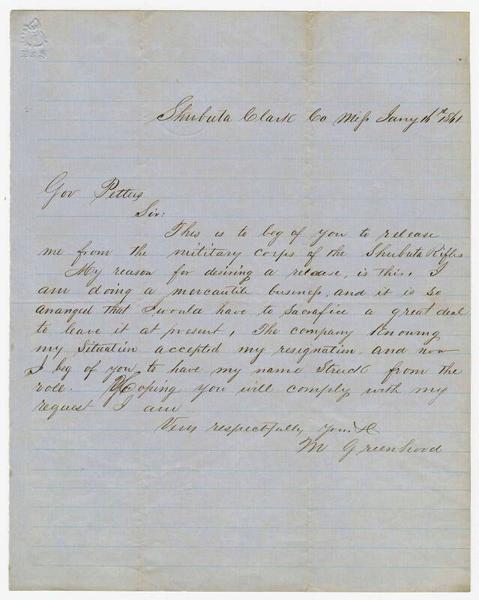 Shubuta Clark Co Miss Jany 16th 1861
Gov Pettus
Sir:
This is to beg of you to release
me from the military corps of the Shubuta Rifles
My reason for desiring a release, is this, I
am doing a mercantile business, and it is so
arranged that I would have to sacrifice a great deal
to leave it at present, The company Knowing
my Situation accepted my resignation and now
I beg of you, to have my name Struck from the
role. Hoping you will comply with my
request I am
Very respectfully Your
M Greenhood